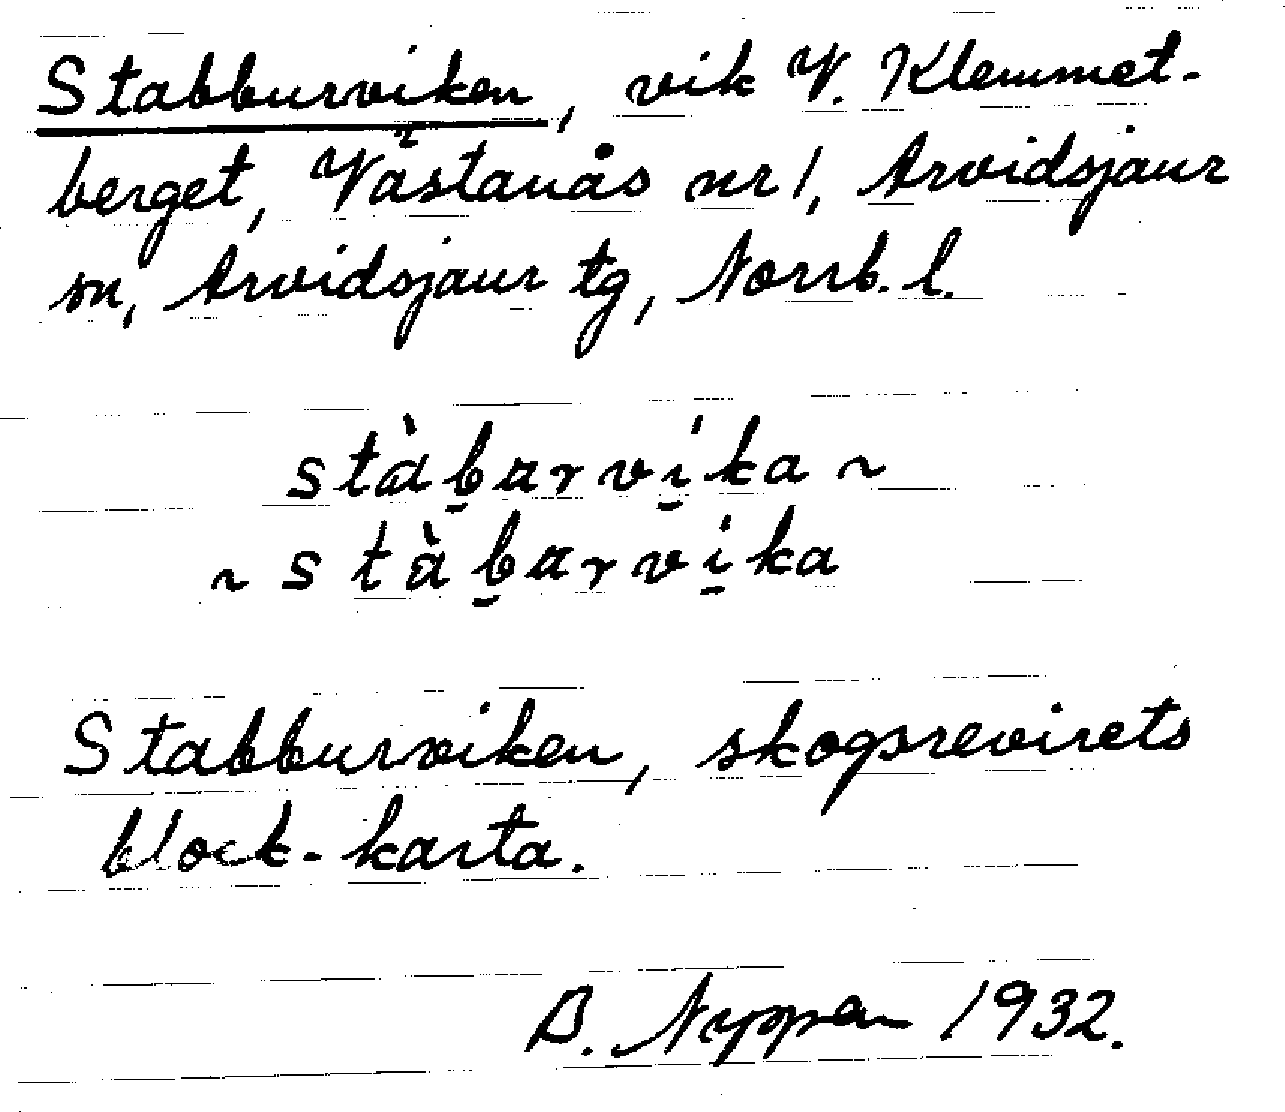 Stabburviken, vik V. Klemmet-
berget, Västanås nr 1, Arvidsjaur
sn, Arvidsjaur tg, Norrb. l.
stàḇarví̱ka ~
~ stàḇarví̱ka
Stabburviken, skogsrevirets
block-karta.
B. Nyppen 1932.